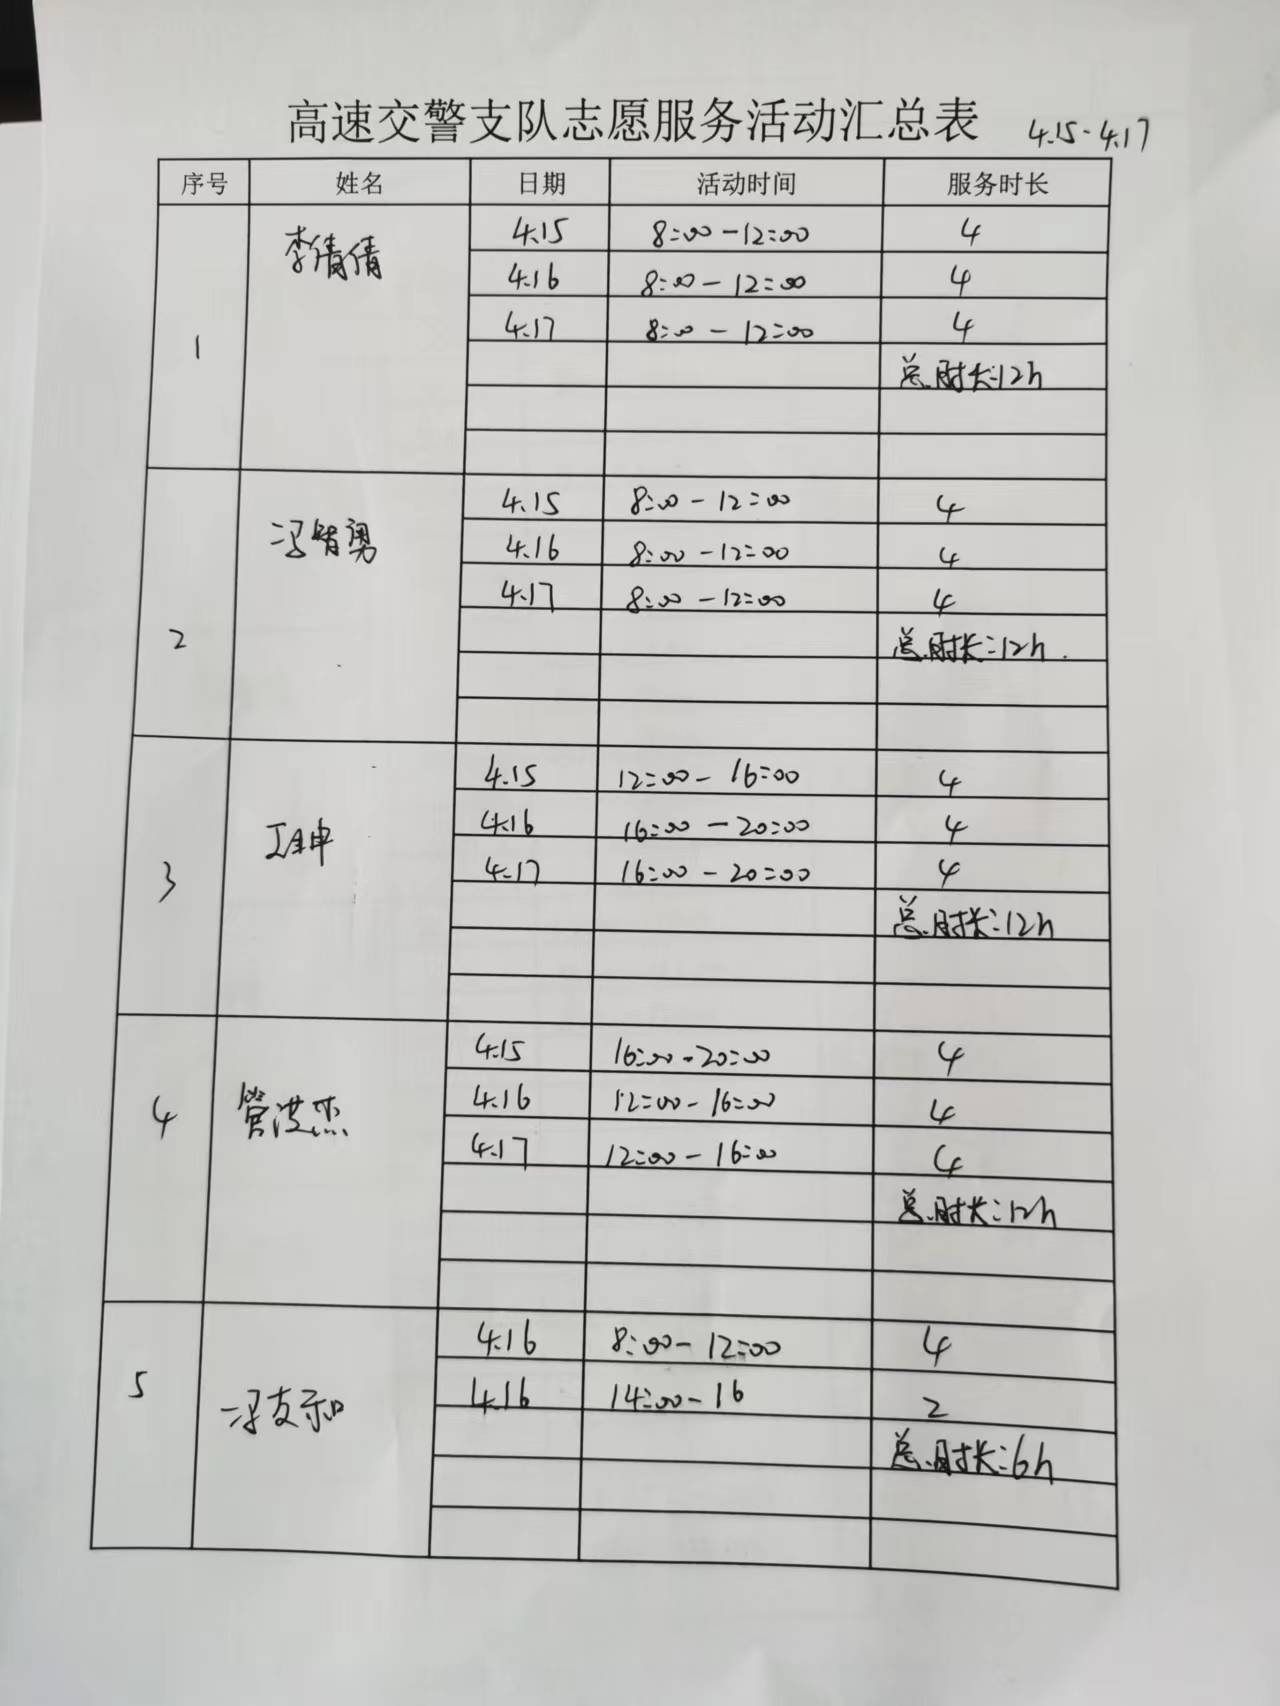 高速交警支队志愿服务活动汇总表 4.15-4.17
序号 姓名 日期 活动时间 服务时长
1 李倩倩 4.15 8:00-12:00 4
4.16 8:00-12:00 4
4.17 8:00-12:00 4
总时长:12h
2 冯智勇 4.15 8:00-12:00 4
4.16 8:00-12:00 4
4.17 8:00-12:00 4
总时长:12h.
3 4.15 12:00-16:00 4
4.16 16:00-20:00 4
4.17 16:00-20:00 4
总时长:12h
4 管洪杰 4.15 16:00-20:00 4
4.16 12:00-16:00 4
4.17 12:00-16:00 4
总时长:12h
5 4.16 8:00-12:00 4
4.16 14:00-16 2
总时长:6h